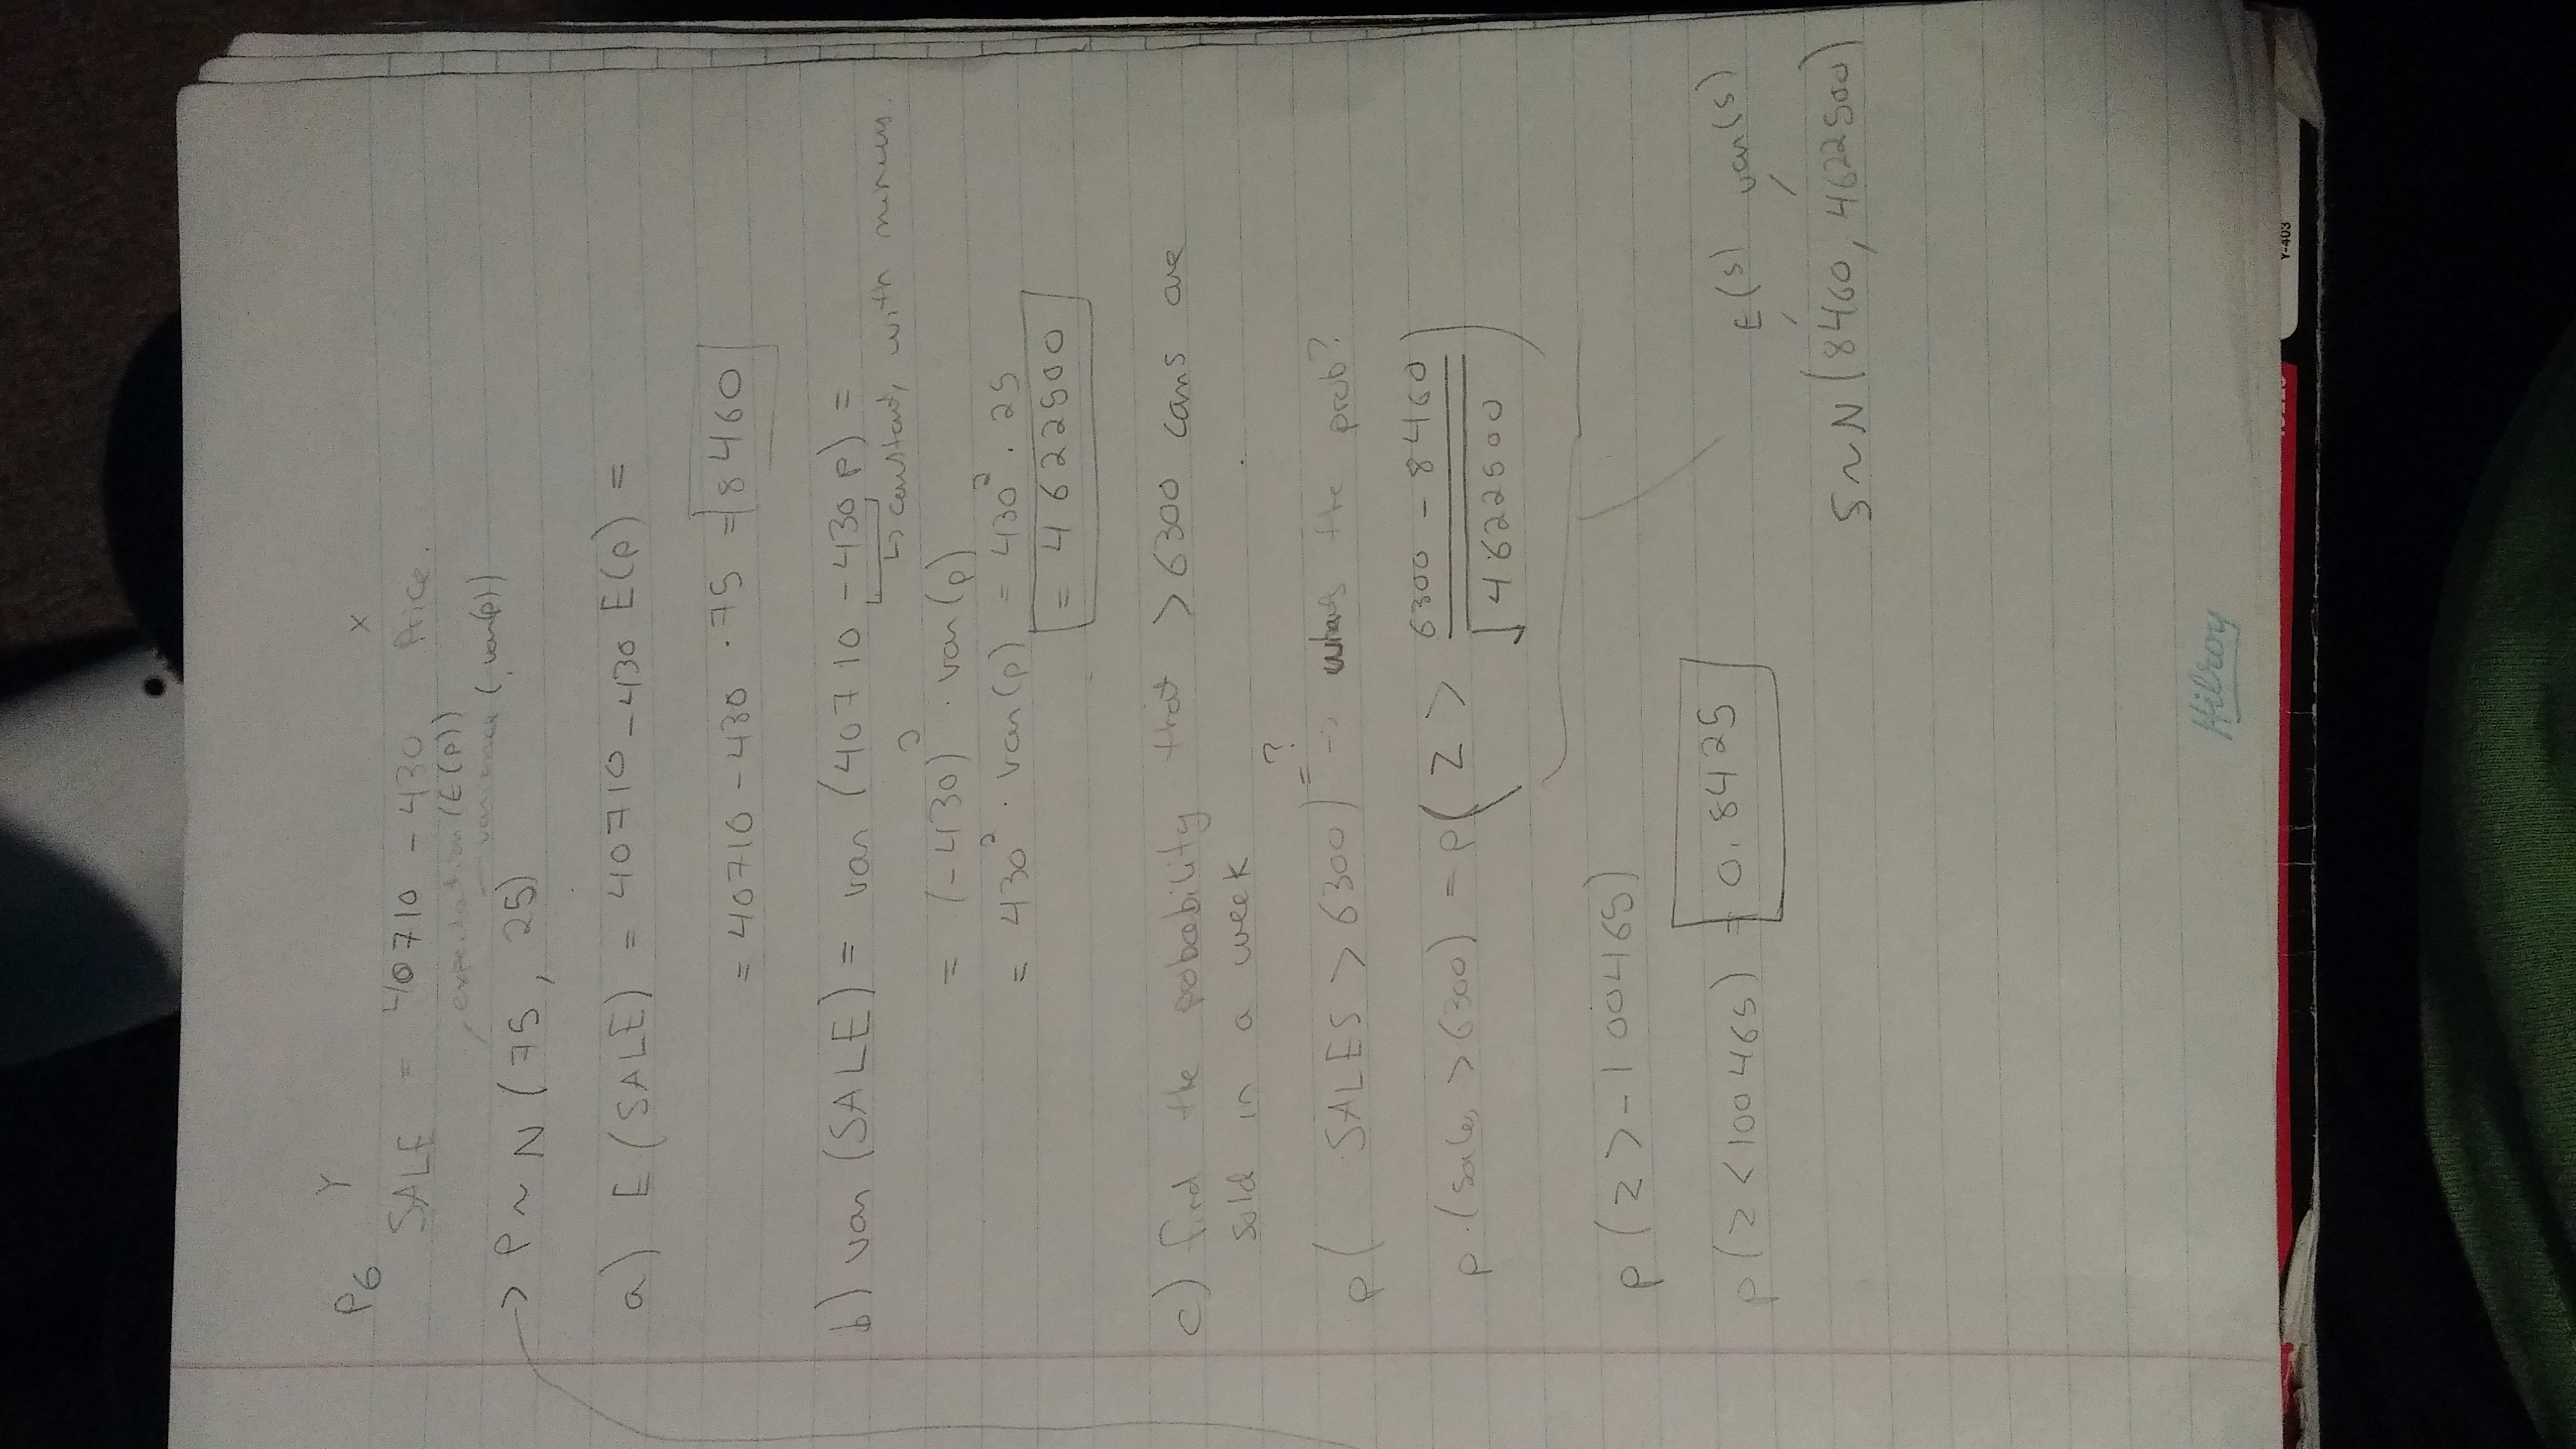 P6 Y X
SALE = 40710 - 430 Price.
expectation (E(p))
variance (var(p))
→ P ~ N (75, 25)
a) E (SALE) = 40710 - 430 E(p) =
= 40710 - 430 · 75 = 8460
b) var (SALE) = var (40710 - 430 p) =
↳ constant, with minus.
= (-430)² · var(p)
= 430² · var(p) = 430² · 25
= 4622500
c) find the probability that > 6300 cans are
sold in a week
P( SALES > 6300) =? → whats the prob?
P (sales > 6300) = P( Z > 6300 - 8460 / √4622500 )
P (Z > -1.00465)
E(s) var(s)
P (Z < 100465) = 0.8425
S ~ N (8460, 4622500)
Hilroy
Y-403